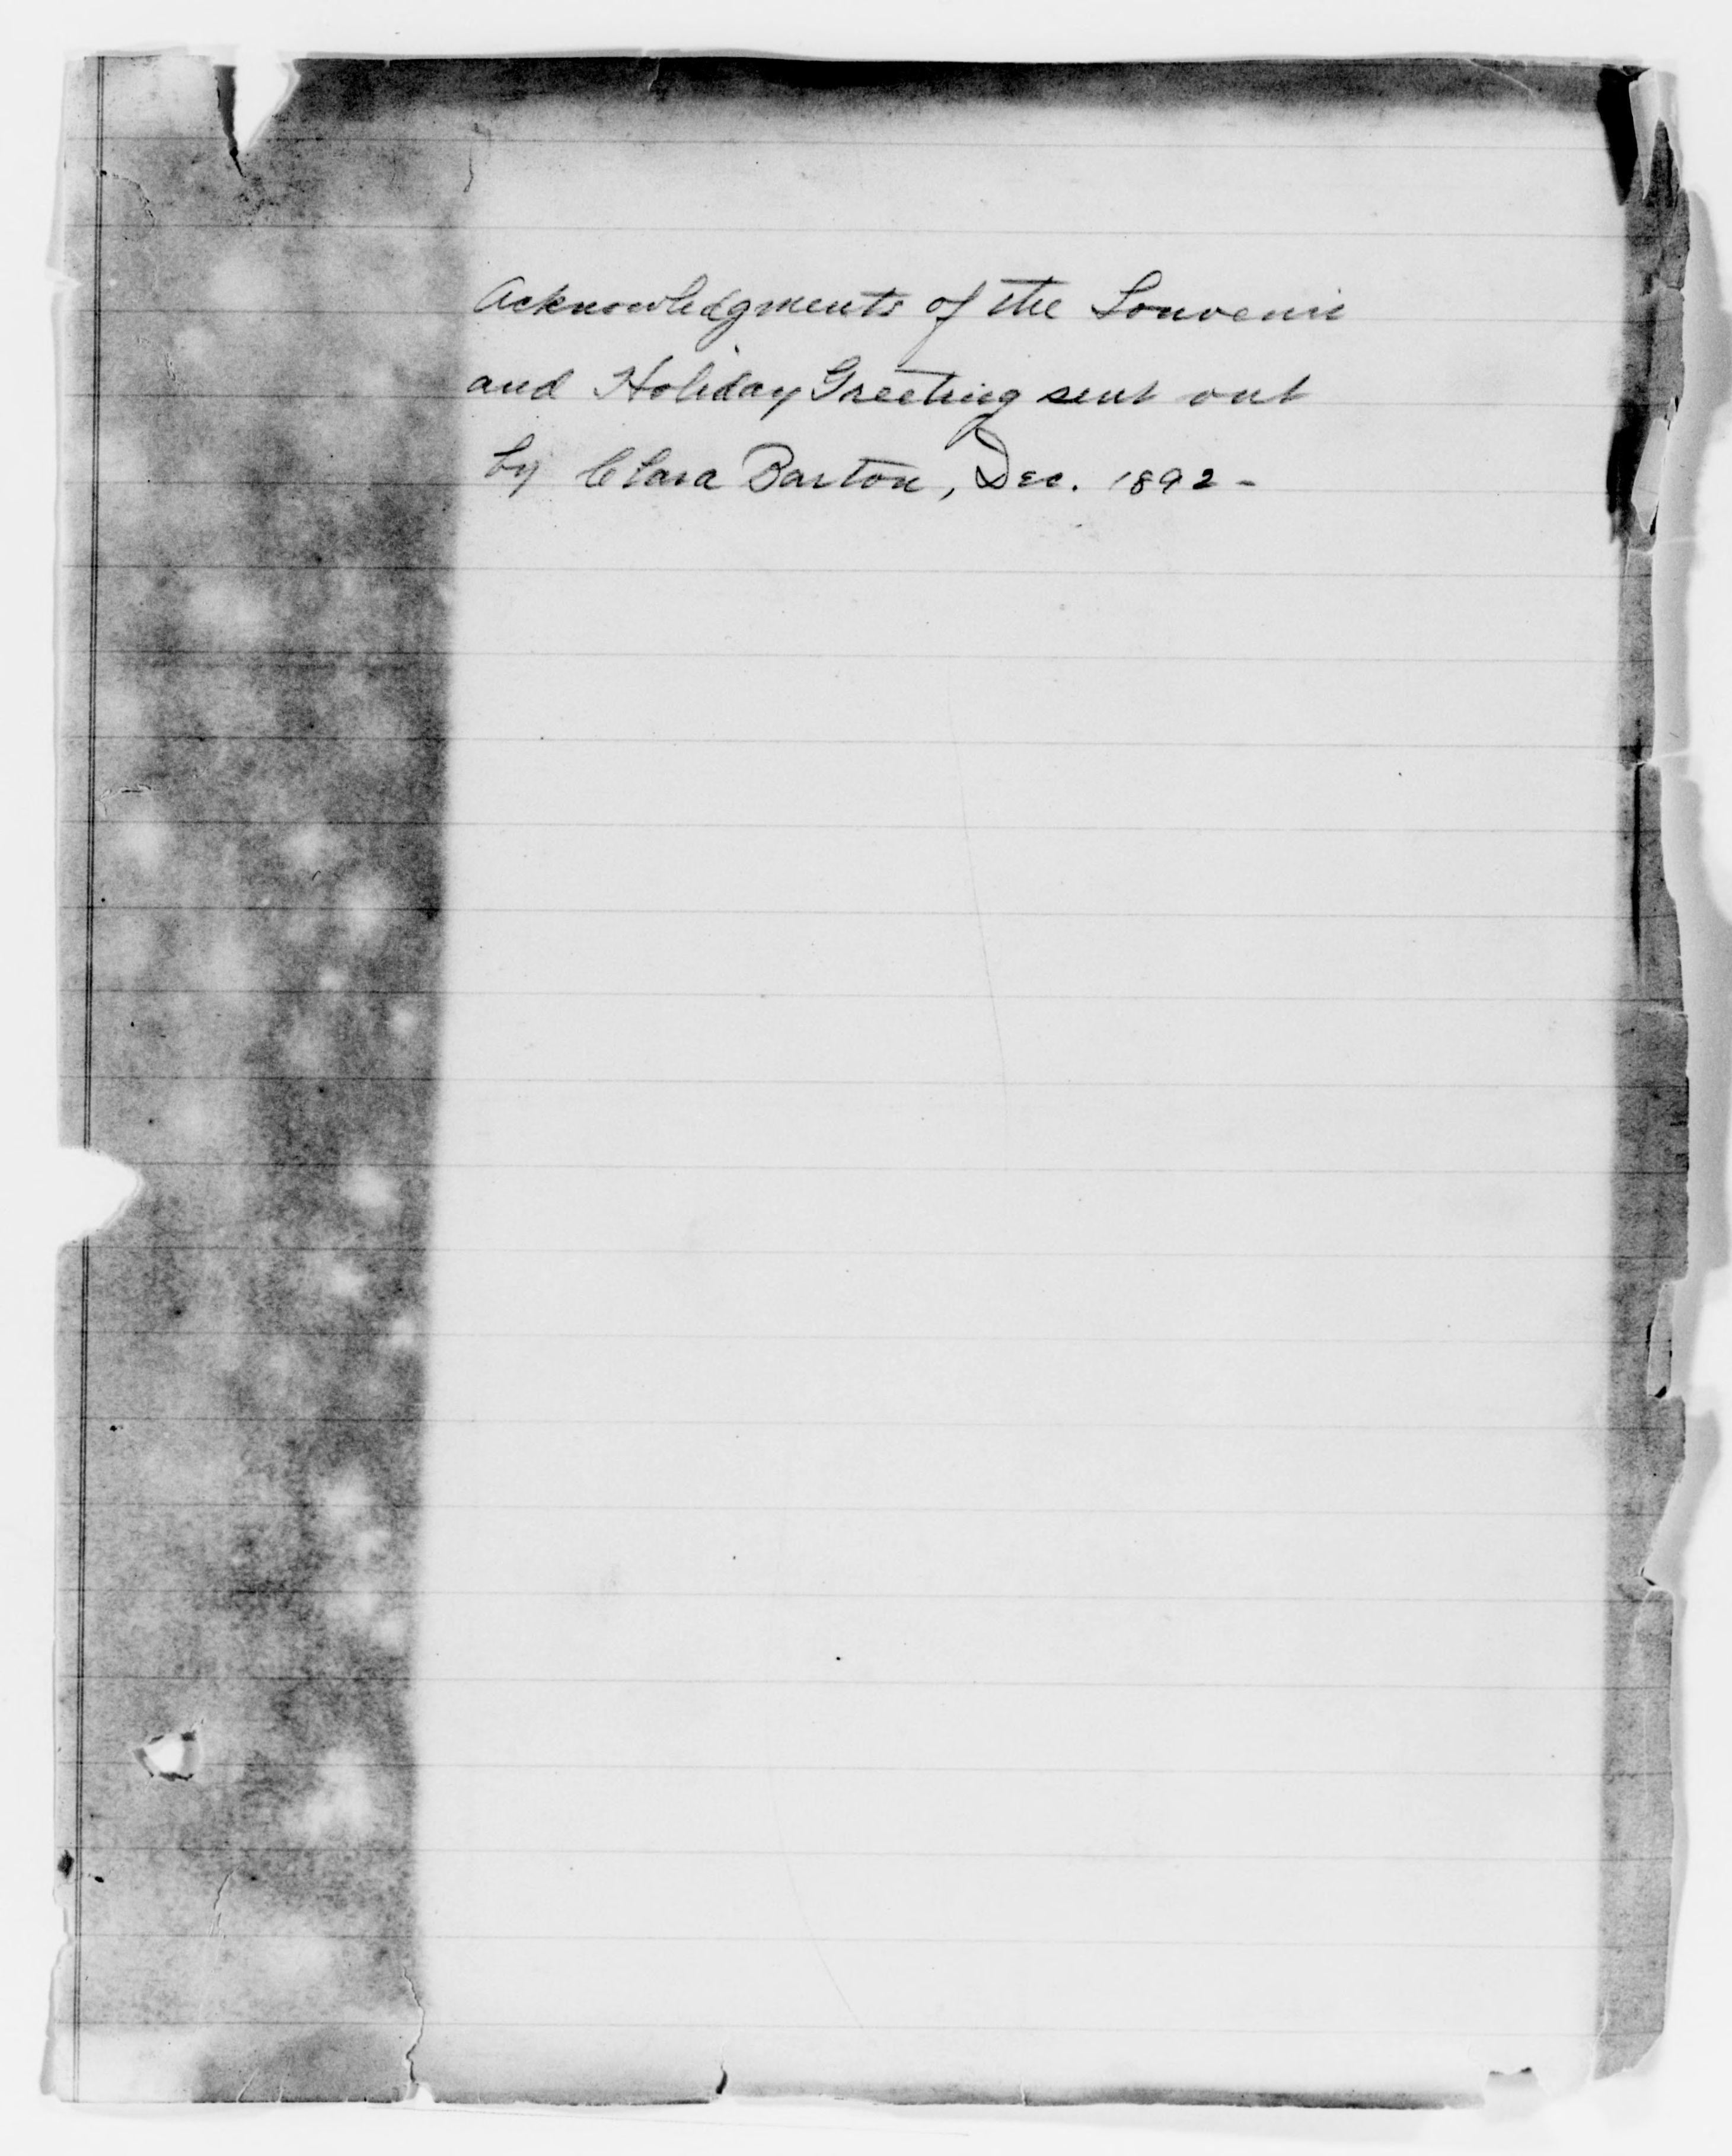 Acknowledgments of the Souvenir
and Holiday Greeting sent out
by Clara Barton, Dec. 1892-